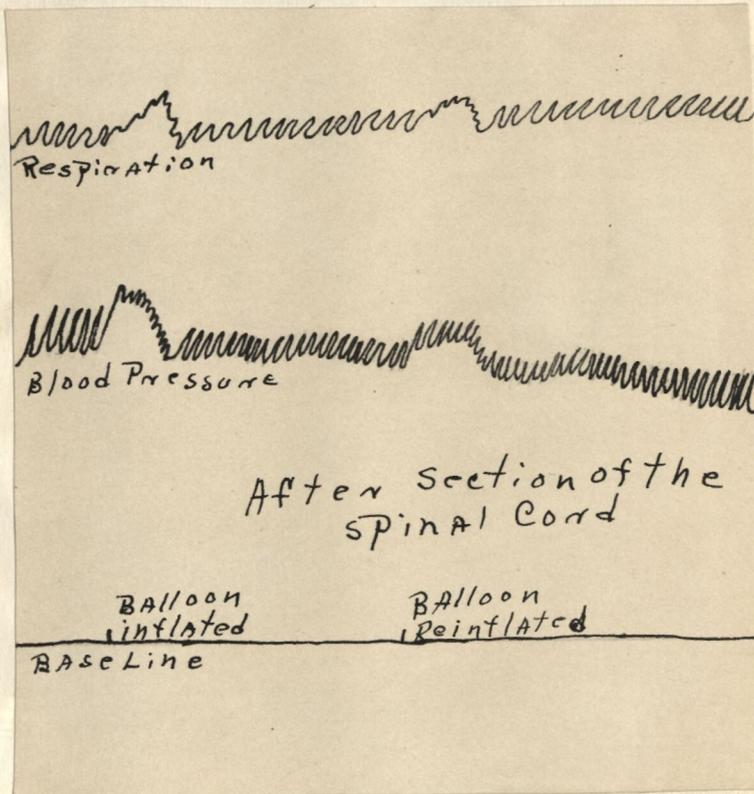 Respiration
Blood Pressure
After Section of the
Spinal Cord
Balloon
inflated
Balloon
Reinflated
Base Line